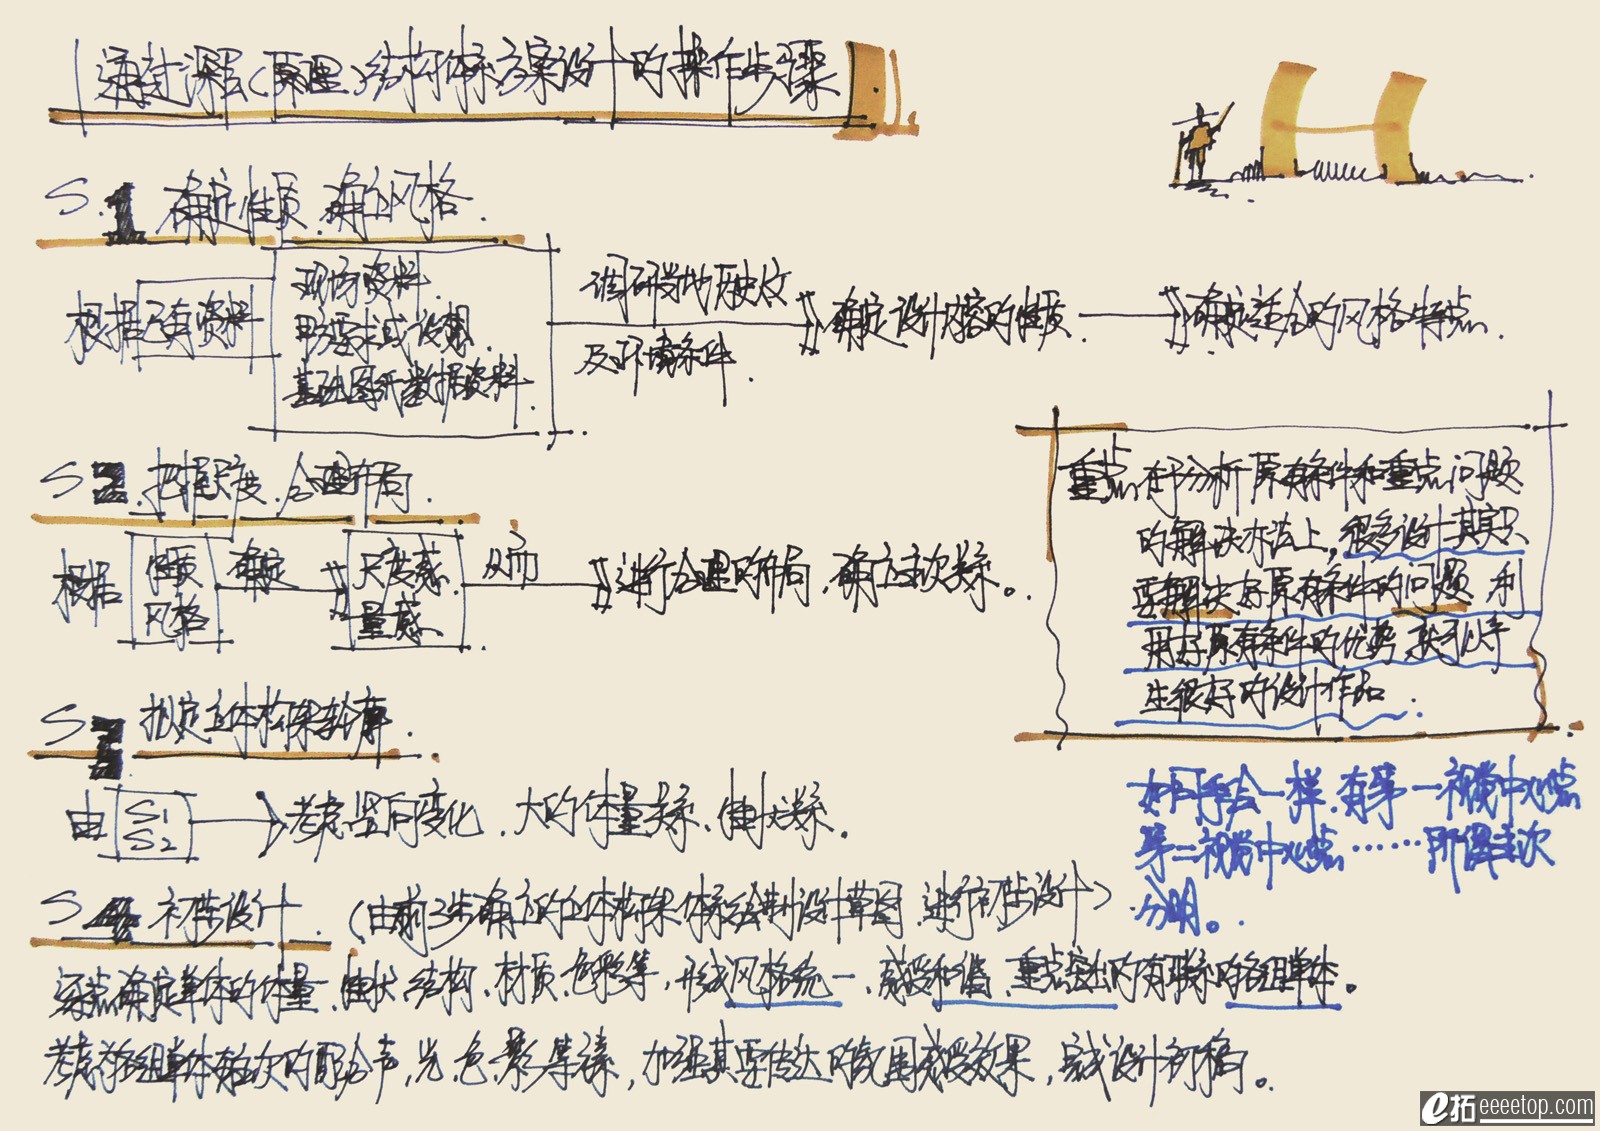 通过深层(原理)结构体系方案设计的操作步骤
S.1 确定性质.确立风格.
根据已有资料
现场资料.
甲方要求或设想.
基础图纸数据资料.
调研当地历史文
及环境条件.
确定设计内容的性质.
确定适合的风格特点.
S 2.把握尺度.合理布局.
根据
性质
风格
确定
尺度感
量感
从而
进行合理的布局、确立主次关系。
重点在于分析原有条件和重点问题
的解决办法上,很多设计其实只
要解决好原有条件的问题 利
用好原有条件的优势
生很好的设计作品.
S 3 拟定立体构架轮廓.
由
S1
S2
考虑竖向变化、大的体量关系、
如同绘画一样.有第一视觉中心点
第二视觉中心点……所谓主次
分明。
S 4 初步设计.(由前三步确立的立体构架体系绘制设计草图.进行初步设计)
确定单体的体量.形状.结构、材质.色彩等,形成风格统一、感受和谐、重点突出的有联系的各组单体。
考虑各组单体每次的配合声,光,色,影等等,加强其要传达的氛围感受效果,完成设计初稿。
e拓 eeeetop.com